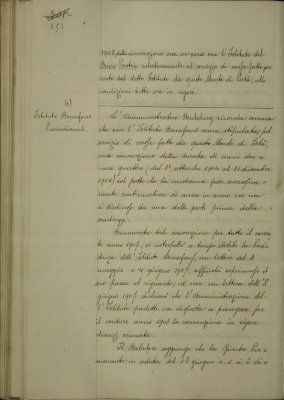 251
1908, della convenzione ora in corso con l'Istituto del
Buon Pastore relativamente al servizio di cassa fatto per
conto del detto Istituto da questo Monte di Pietà, alle
condizioni tutte ora in vigore.
6)
Istituto Bonafous
Provvedimenti.
L'Amministratore ricorda ancora
che con l'Istituto Bonafous venne stipulata, pel
servizio di cassa fatto da questo Monte di Pietà,
una convenzione della durata di anni due e
mesi quattro (dal 1° settembre 1904 al 31 dicembre
1906) col patto che la medesima fosse successiva-
mente continuativa di anno in anno ove non
si disdica da una delle parti prima della
scadenza.
Rinnovata tale convenzione per tutto il corren-
te anno 1907, si interpellò a tempo debito la Presi-
denza dell'Istituto Bonafous, con lettere del 8
maggio e 4 giugno 1907, affinchè esprimesse il
suo parere al riguardo; ed essa con lettera dell'8
giugno 1907 dichiarò che l'Amministrazione del-
l'Istituto predetto era disposta a prorogare per
il venturo anno 1908 la convenzione in vigore
dianzi cennata.
Il Relatore aggiunge che la Giunta Per-
manente in seduta del 26 giugno u. s. si è di-